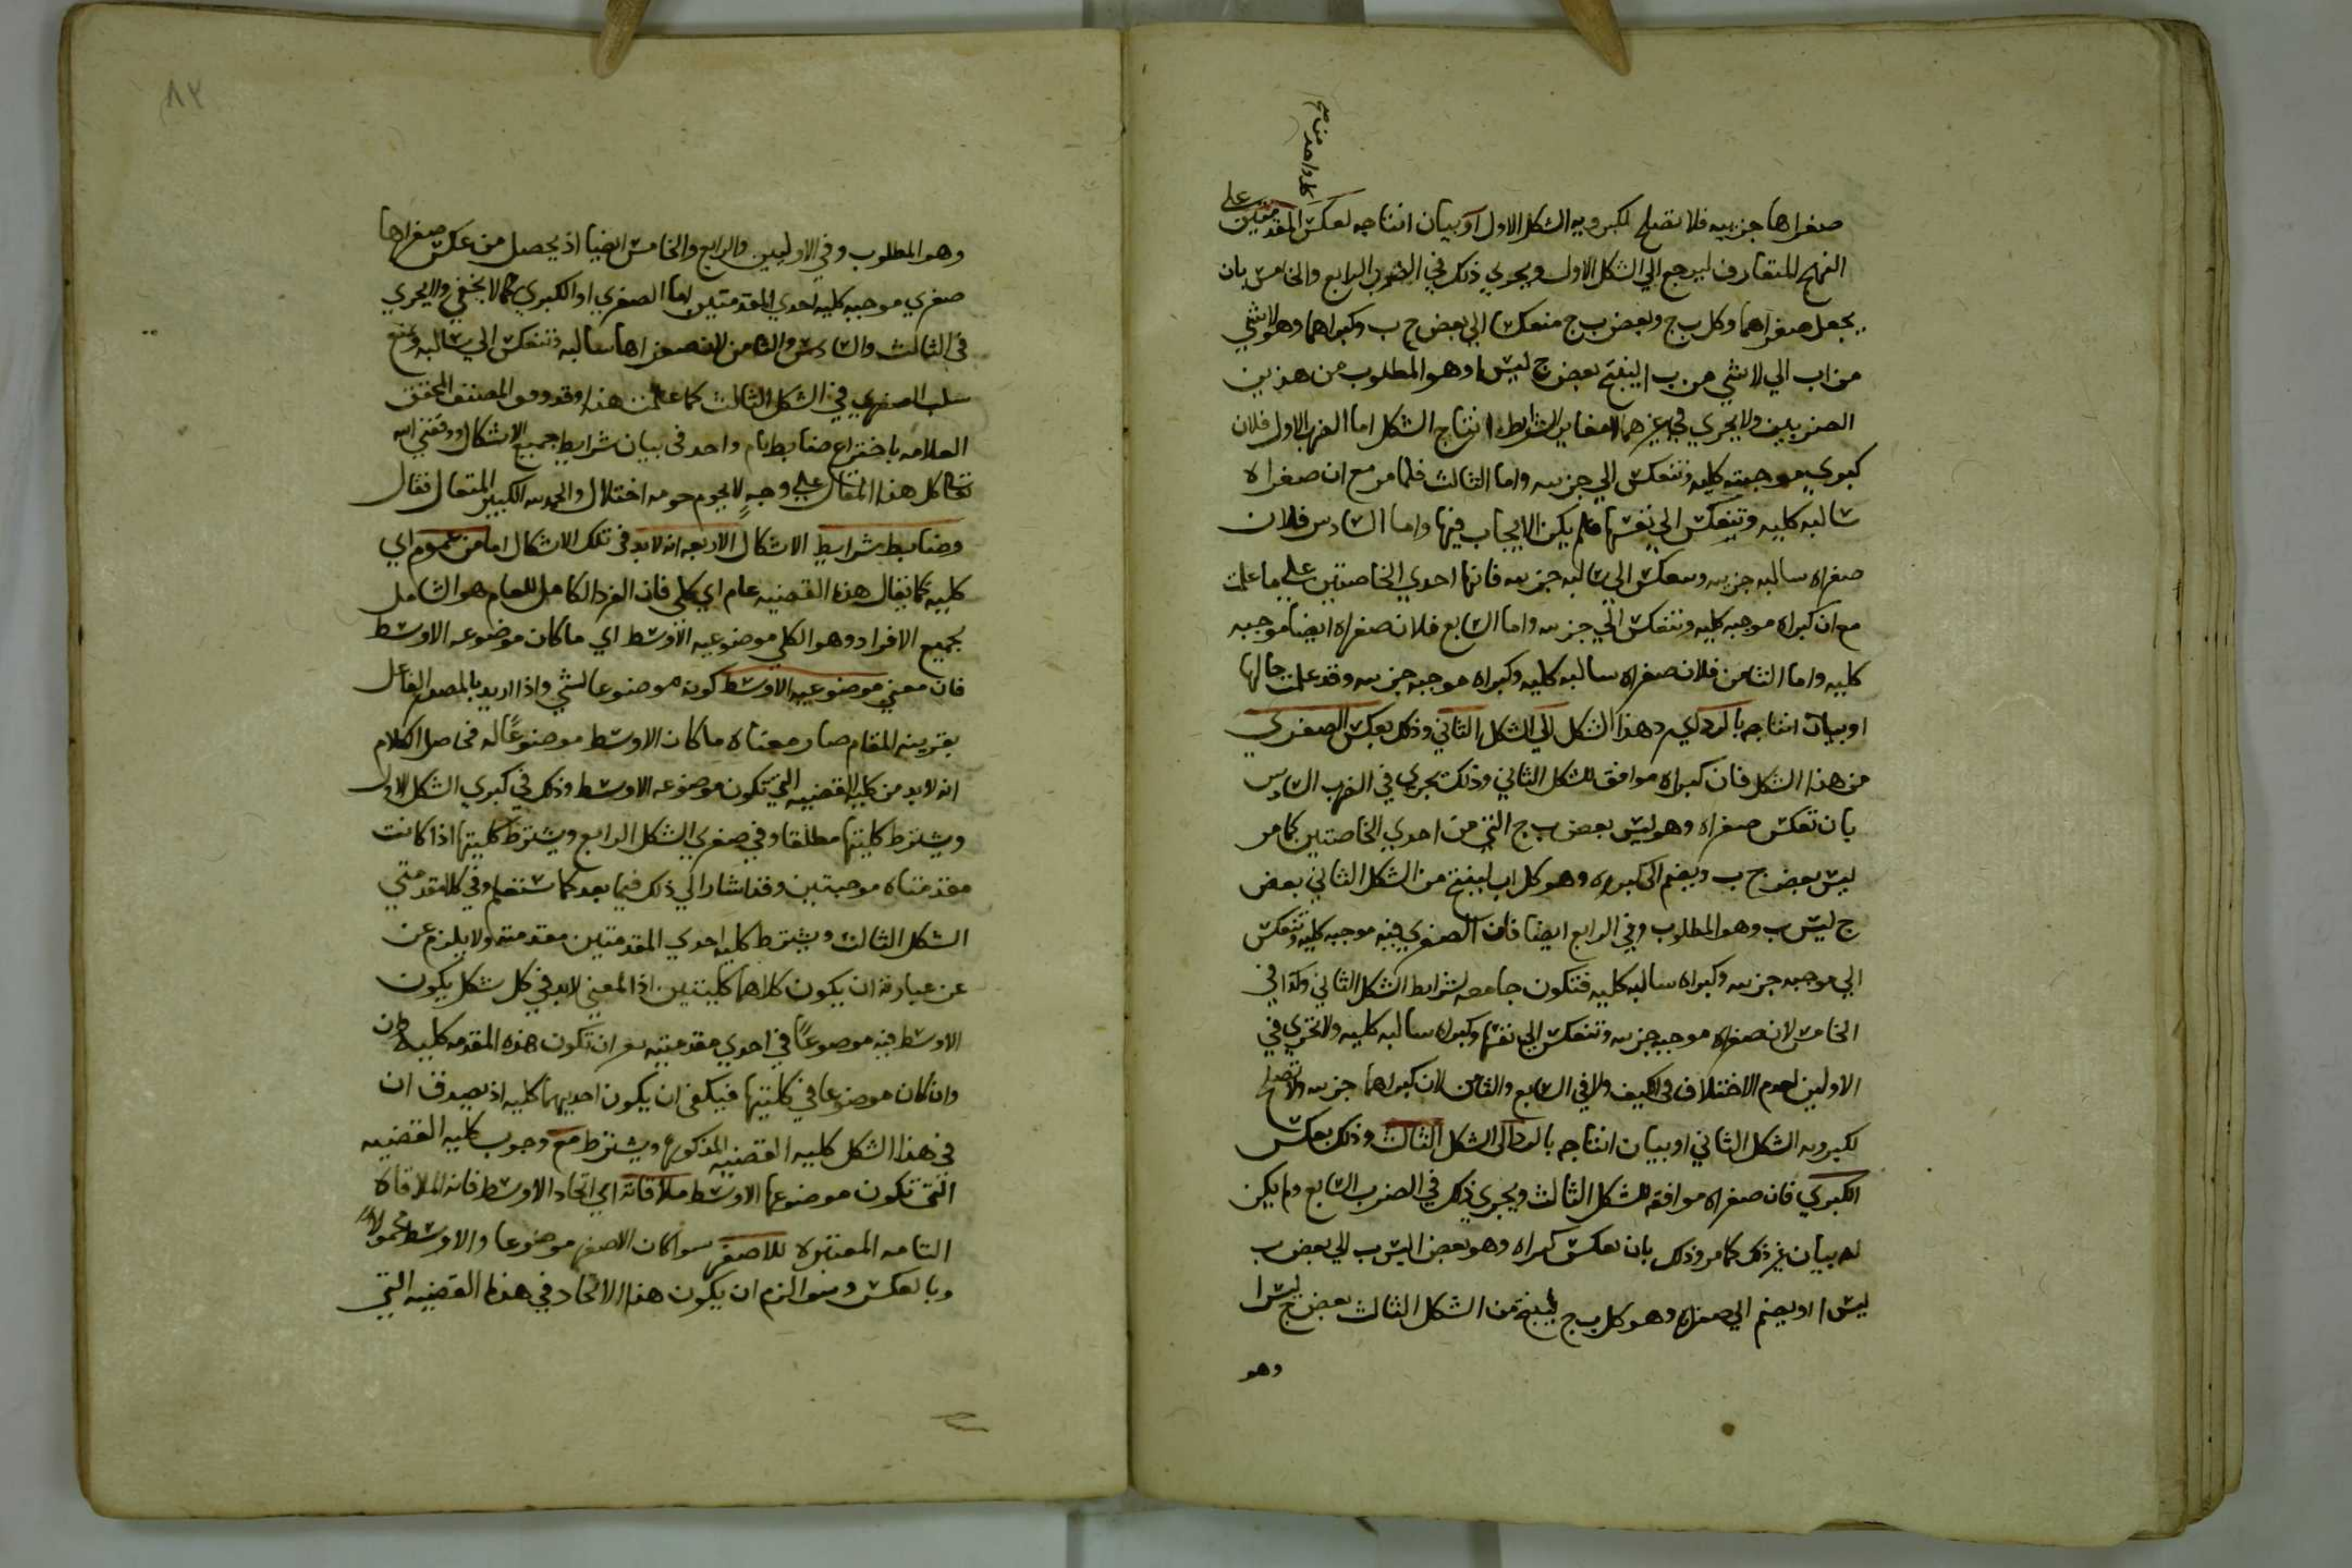 كل واحد من صح
صغراها جزييه فلا تصلح لكبرويه الشكل الاول او بيان انتاجه بعكس المقدمتين على
النهج المتعارف ليرجع الي الشكل الاول ويجري ذلك في الضرب الرابع والخامس بان
يجعل صغراهما وكل ب ج وبعض ب ج منعكسا الي بعض ج ب وكبراهما وهو لا شي
من اب الي لا شي من ب ا لينتج بعض ج ليس ا وهو المطلوب من هذين
الضربين ولا يجري في غيرهما انتاج الشكل اما الضرب الاول فلان
كبري موجبته كليه وتنعكس الي جزييه واما الثالث فلما مر مع ان صغراه
سالبه كليه وتنعكس الي نفسها فلم يكن الايجاب فيها واما السادس فلان
صغراه سالبه جزييه وتنعكس الي سالبه جزييه فانها احدي الخاصتين على ما علمت
مع ان كبراه موجبه كليه وتنعكس الي جزييه واما السابع فلان صغراه ايضا موجبه
كليه واما الثامن فلان صغراه سالبه كليه وكبراه موجبه جزييه وقد علمت حالها
او بيان انتاجه بالرد اي رد هذا الشكل الي الشكل الثاني وذلك بعكس الصغري
من هذا الشكل فان كبراه موافق للشكل الثاني وذلك يجري في الضرب السادس
بان تعكس صغراه وهو ليس بعض ب ج التي من احدي الخاصتين كما مر
ليس بعض ج ب ويضم الي كبراه وهو كل اب لينتج من الشكل الثاني بعض
ج ليس ب وهو المطلوب وفي الرابع ايضا فان الصغري فيه موجبه كليه وتنعكس
الي موجبه جزييه وكبراه سالبه كليه فتكون جامعه لشرايط الشكل الثاني وكذا في
الخامس لان صغراه موجبه جزييه وتنعكس الي نفسها وكبراه سالبه كليه ولا يجري في
الاولين لعدم الاختلاف في الكيف ولا في السابع والثامن لان كبراهما جزييه ولا تصلح
لكبرويه الشكل الثاني او بيان انتاجه بالرد الي الشكل الثالث وذلك بعكس
الكبري فان صغراه موافقه للشكل الثالث ويجري ذلك في الضرب السابع ولم يكن
له بيان غير ذلك كما مر وذلك بان تعكس كبراه وهو بعض ا ليس ب الي بعض ب
ليس ا او يضم الي صغراه وهو كل ب ج لينتج من الشكل الثالث بعض ج ليس ا
وهو
٨٢
وهو المطلوب وفي الاوليين والرابع والخامس ايضا اذ يحصل من عكس صغراها
صغري موجبه كليه احدي المقدمتين اما الصغري او الكبري كما لا يخفي ولا يجري
في الثالث والسادس والثامن لان صغراها سالبه وتنعكس الي سالبه ويمتنع
سلب الصغري في الشكل الثالث كما علمت هذا وقد وفق المصنف المحقق
العلامه باختراع ضابط تام واحد في بيان شرايط جميع الاشكال ووفقني الله
تعالى كل هذا المقال على وجه لا يحوم حومه اختلال والحمد لله الكبير المتعال فقال
وضابط شرايط الاشكال الاربعه انه لابد في تلك الاشكال اما من عموم اي
كليه كما يقال هذه القضيه عام اي كلي فان الفرد الكامل للعام هو الشامل
لجميع الافراد وهو الكلي موضوعيه الاوسط اي ما كان موضوعه الاوسط
فان معني موضوعيه الاوسط كونه موضوعا لشي واذا اريد بالمصدر الفاعل
بقرينه المقام صار معناه ما كان الاوسط موضوعا له فحاصل الكلام
انه لابد من كليه القضيه التي تكون موضوعه الاوسط وذلك في كبري الشكل الاول
ويشترط كليتها مطلقا وفي صغري الشكل الرابع ويشترط كليتها اذا كانت
مقدمتاه موجبتين وقد اشار الي ذلك فيما بعد كما ستعلم وفي كلا مقدمتي
الشكل الثالث ويشترط كليه احدي المقدمتين مقدمته ولا يلزم عن
عن عبارته ان يكون كلاهما كليتين اذ المعني لابد في كل شكل يكون
الاوسط فيه موضوعا في احدي مقدمتيه من ان تكون هذه المقدمه كليه وان
وان كان موضوعا في كلتيها فيكفي ان يكون احديهما كليه اذ يصدق ان
في هذا الشكل كليه القضيه المذكوره ويشترط مع وجوب كليه القضيه
التي تكون موضوعها الاوسط ملاقاته اي اتحاد الاوسط فانه الملاقاه
التامه المعتبره للاصغر سواء كان الاصغر موضوعا والاوسط محمولا
وبالعكس وسوا لزم ان يكون هذا الاتحاد في هذه القضيه التي